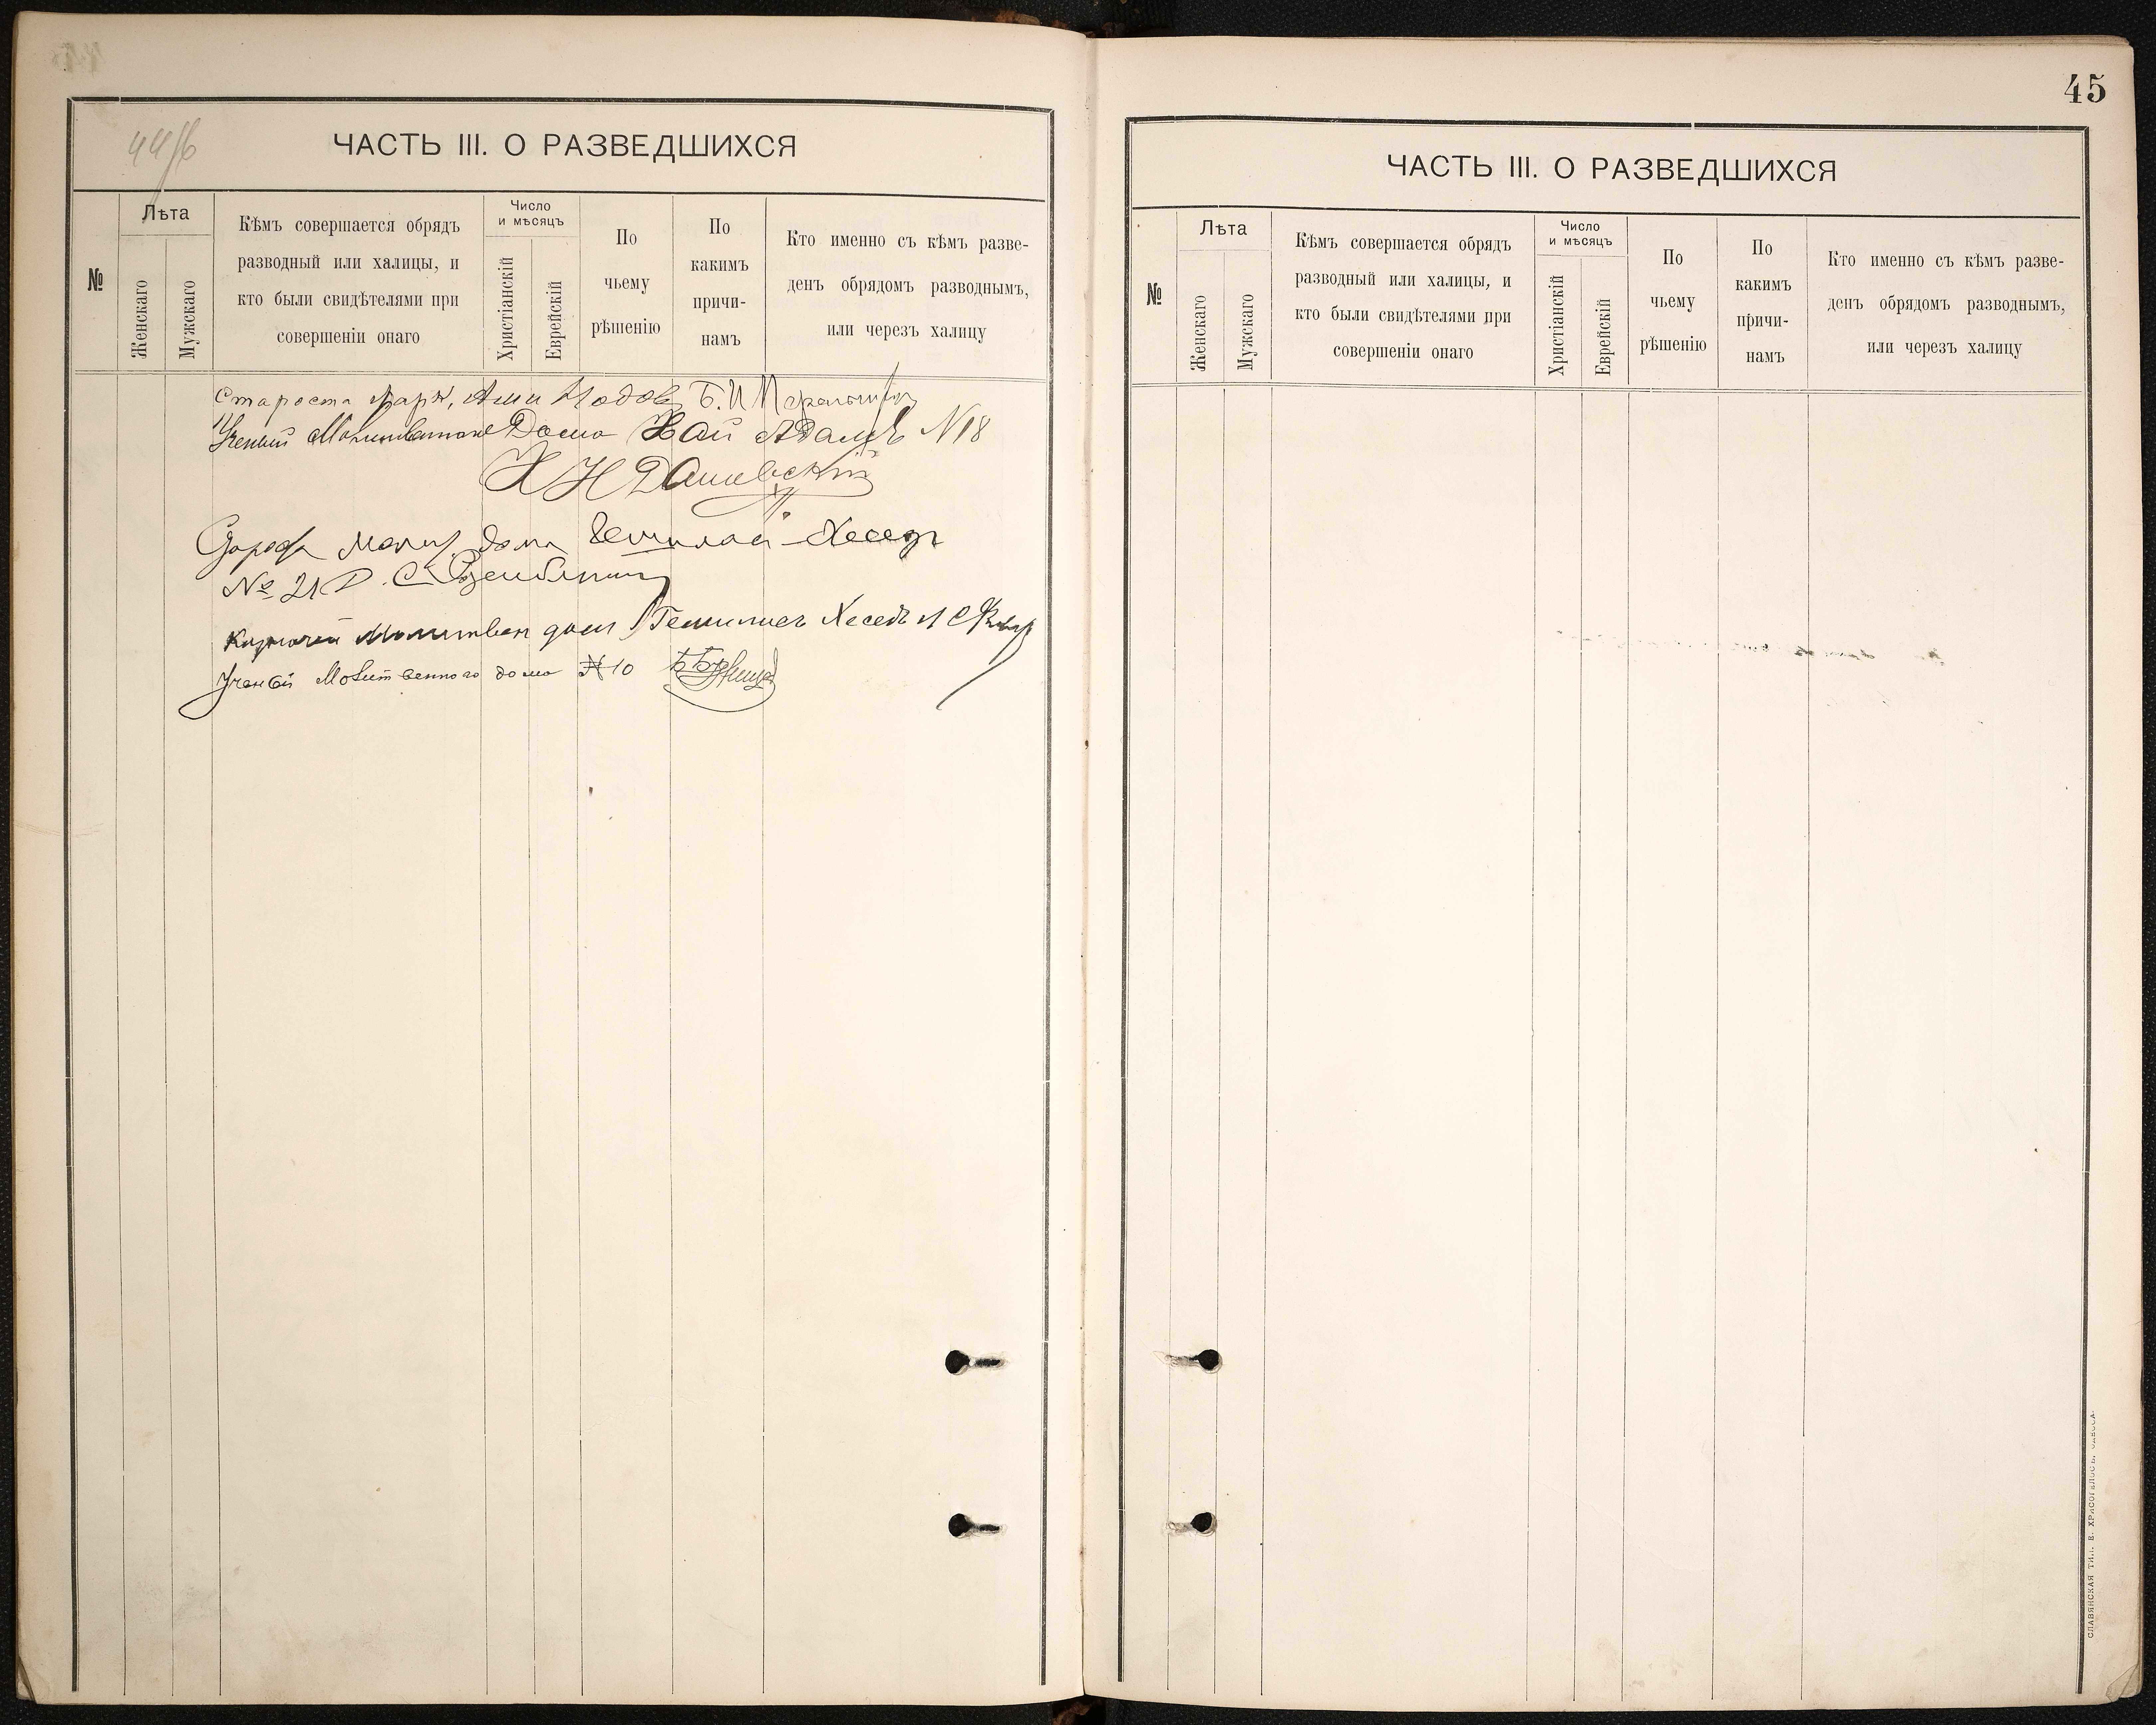 44об
ЧАСТЬ III. О РАЗВЕДШИХСЯ
№
Лѣта
Женскаго
Мужскаго
Кѣмъ совершается обрядъ
разводный или халицы, и
кто были свидѣтелями при
совершеніи онаго
Число
и мѣсяцъ
Христіанскій
Еврейскій
По
чьему
рѣшенію
По
какимъ
причи-
намъ
Кто именно съ кѣмъ разве-
денъ обрядомъ разводнымъ,
или черезъ халицу
Староста Б. И
Ученый Дома Хай Адамъ N18
Х Н Дашевскій
Молит. дома Хеседъ
№ 21
Молитвен дома Хеседъ
Ученый Молитвенного дома № 10
45
ЧАСТЬ III. О РАЗВЕДШИХСЯ
№
Лѣта
Женскаго
Мужскаго
Кѣмъ совершается обрядъ
разводный или халицы, и
кто были свидѣтелями при
совершеніи онаго
Число
и мѣсяцъ
Христіанскій
Еврейскій
По
чьему
рѣшенію
По
какимъ
причи-
намъ
Кто именно съ кѣмъ разве-
денъ обрядомъ разводнымъ,
или черезъ халицу
СЛАВЯНСКАЯ ТИП. Е. ХРИСОГЕЛОСЪ, ОДЕССА.